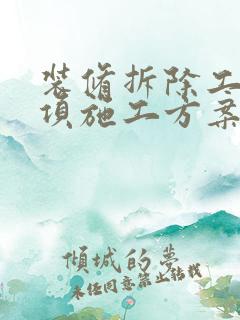 装修拆除工
项施工方案
倾城的梦
未经同意禁止转载